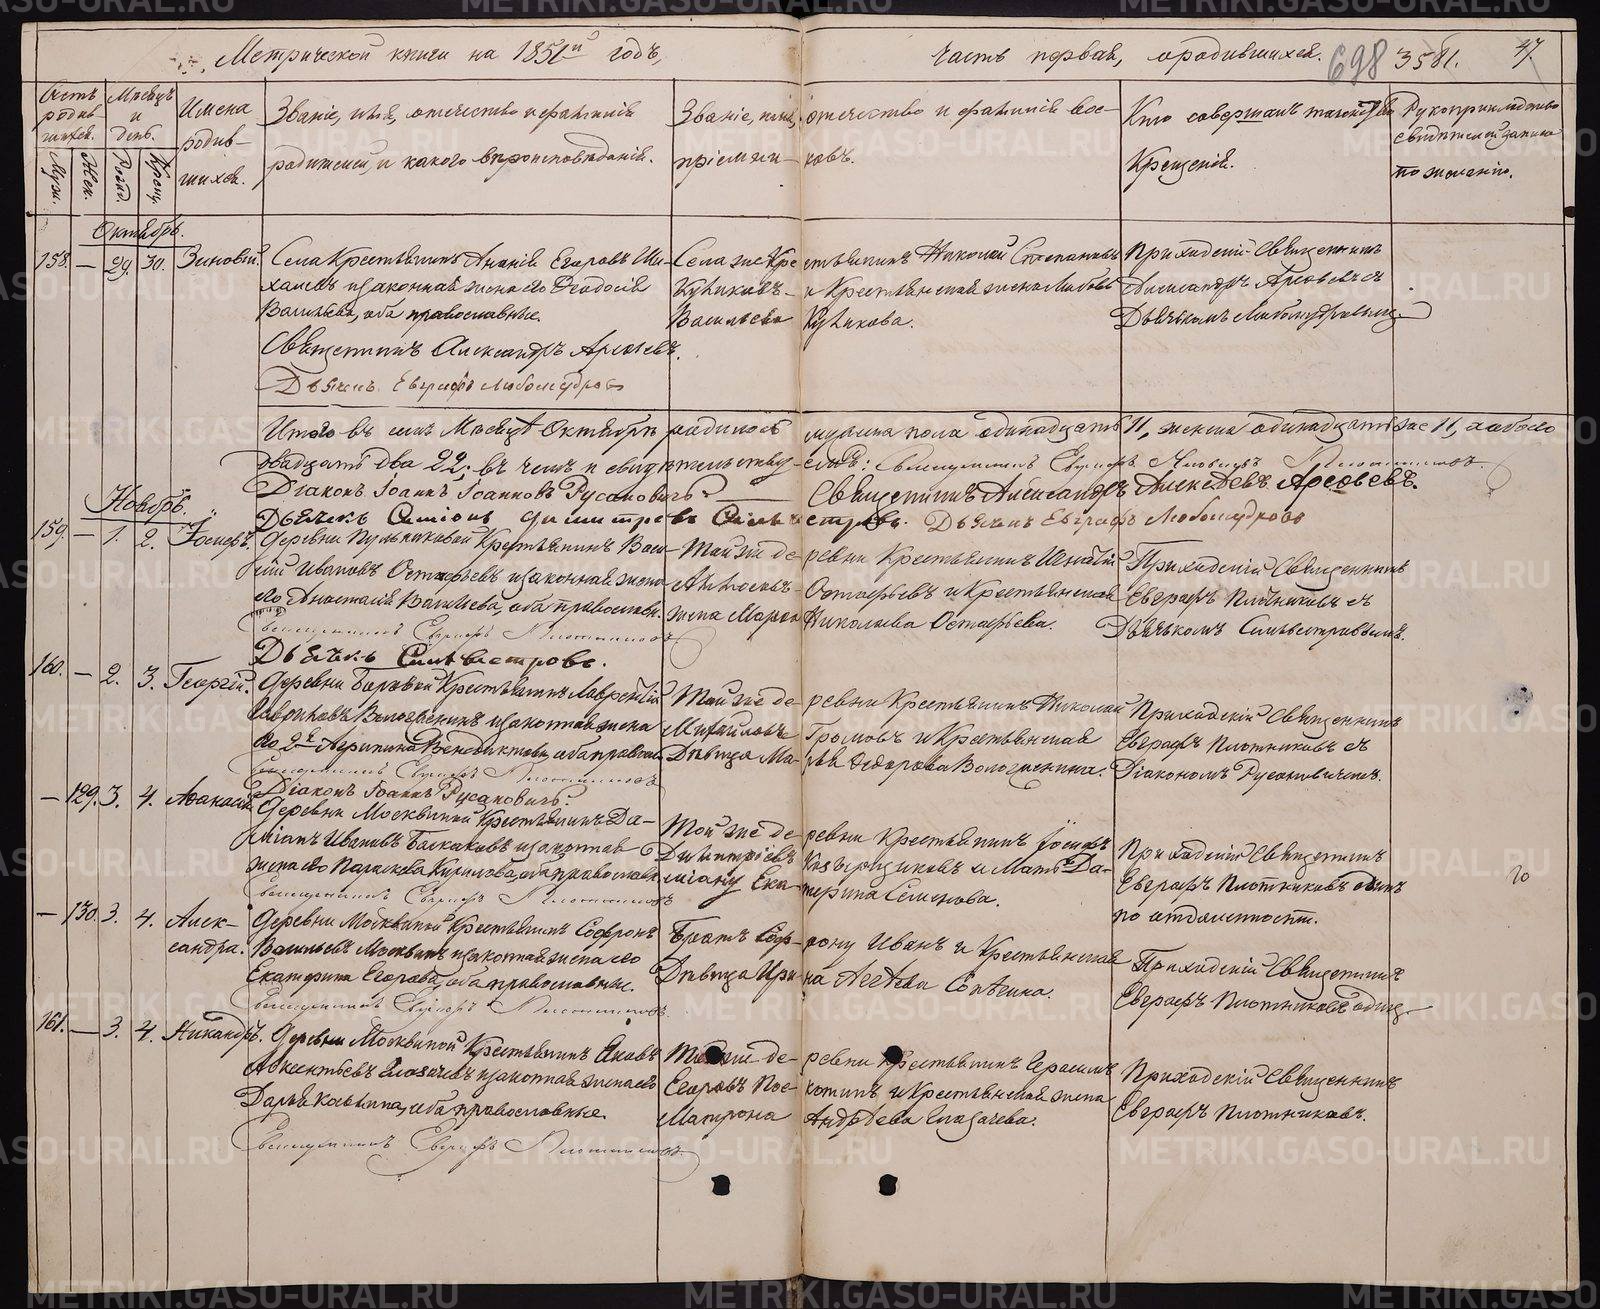 Метрической книги на 1851й годъ,
часть первая, о родившихся. 698 3581. 37.
Счетъ родив-шихся. Муж. Жен.
Мѣсяцъ и день. Рожд. Крещ.
Имена родив-шихся.
Званіе, имя, отечество и фамилія
родителей, и какого вѣроисповѣданія.
Званіе, имя, отечество и фамилія вос-
пріемни-ковъ.
Кто совершалъ таинство
Крещенія.
Рукоприкладство
свидѣтелей записи
по желанію.
Октябрь.
158. — 29. 30. Зиновій.
Села Крестьянинъ Ананій Егоровъ Ми-
хаевъ и законная жена его Ѳеодосія
Васильева, оба православные.
Священникъ Александръ Арсеньевъ.
Дьячекъ Евграфъ Любомудровъ
Села же Кре-стьянинъ Николай Степановъ
Куликовъ и Крестьянская жена Любовь
Васильева Куликова.
Приходскій Священникъ
Александръ Арсеньевъ съ
Дьячкомъ Любомудровымъ.
Итого въ семъ Мѣсяцѣ Октябрѣ родилось мужска пола одинадцать 11, женска одинадцать же 11, а обоего
двадцать два 22; въ чемъ и свидѣтельству-емъ: Священникъ Евграфъ Плотниковъ.
Діаконъ Іоаннъ Іоанновъ Русановичъ. Священникъ Александръ Алексѣевъ Арсеньевъ.
Дьячекъ Симеонъ Димитріевъ Сильвестровъ. Дьячекъ Евграфъ Любомудровъ
Ноябрь.
159. — 1. 2. Іосифъ.
Деревни Крестьянинъ Васи-
лій Ивановъ Остафьевъ и законная жена
его Анастасія Васильева, оба православн.
Священникъ Евграфъ Плотниковъ
Дьячекъ Сильвестровъ.
Той же де-ревни Крестьянинъ Игнатій
Остафьевъ и Крестьянская
жена Марѳа Николаева Остафьева.
Приходскій Священникъ
Евграфъ Плотниковъ съ
Дьячкомъ Сильвестровымъ.
160. — 2. 3. Георгій.
Деревни Боровой Крестьянинъ Лаврентій
Гавриловъ Вологженинъ и законная жена
его 2я Агрипина Венедиктова, оба правосл.
Священникъ Евграфъ Плотниковъ
Діаконъ Іоаннъ Русановичъ.
Той же де-ревни Крестьянинъ Николай
Михайловъ Громовъ и Крестьянская
Дѣвица Ма-рія Ѳедорова Вологженина.
Приходскій Священникъ
Евграфъ Плотниковъ съ
Діакономъ Русановичемъ.
— 129. 3. 4.
Деревни Москвиной Крестьянинъ Да-
міанъ Ивановъ Баскаковъ и законная
жена его Параскева Кирилова, оба православн.
Священникъ Евграфъ Плотниковъ
Той же де-ревни крестьянинъ Іосифъ
Димитріевъ Козырщиковъ и Мать Да-
міану Ека-терина Семенова.
Приходскій Священникъ
Евграфъ Плотниковъ одинъ
по отдаленности.
— 130. 3. 4. Алек-
сандра.
Деревни Москвиной Крестьянинъ Софронъ
Васильевъ Москвинъ и законная жена его
Екатерина Егорова, оба православные.
Священникъ Евграфъ Плотниковъ
Братъ Соф-рону Иванъ и Крестьянская
Дѣвица Ири-на Агѣева
Приходскій Священникъ
Евграфъ Плотниковъ одинъ.
161. — 3. 4. Никандръ.
Деревни Москвиной Крестьянинъ Яковъ
Авксентьевъ Глазачевъ и законная жена его
Дарья, оба православные.
Священникъ Евграфъ Плотниковъ
Той же де-ревни крестьянинъ Герасимъ
Егоровъ Пос-котинъ и Крестьянская жена
Матрона Андрѣева Глазачева.
Приходскій Священникъ
Евграфъ Плотниковъ.
METRIKI.GASO-URAL.RU